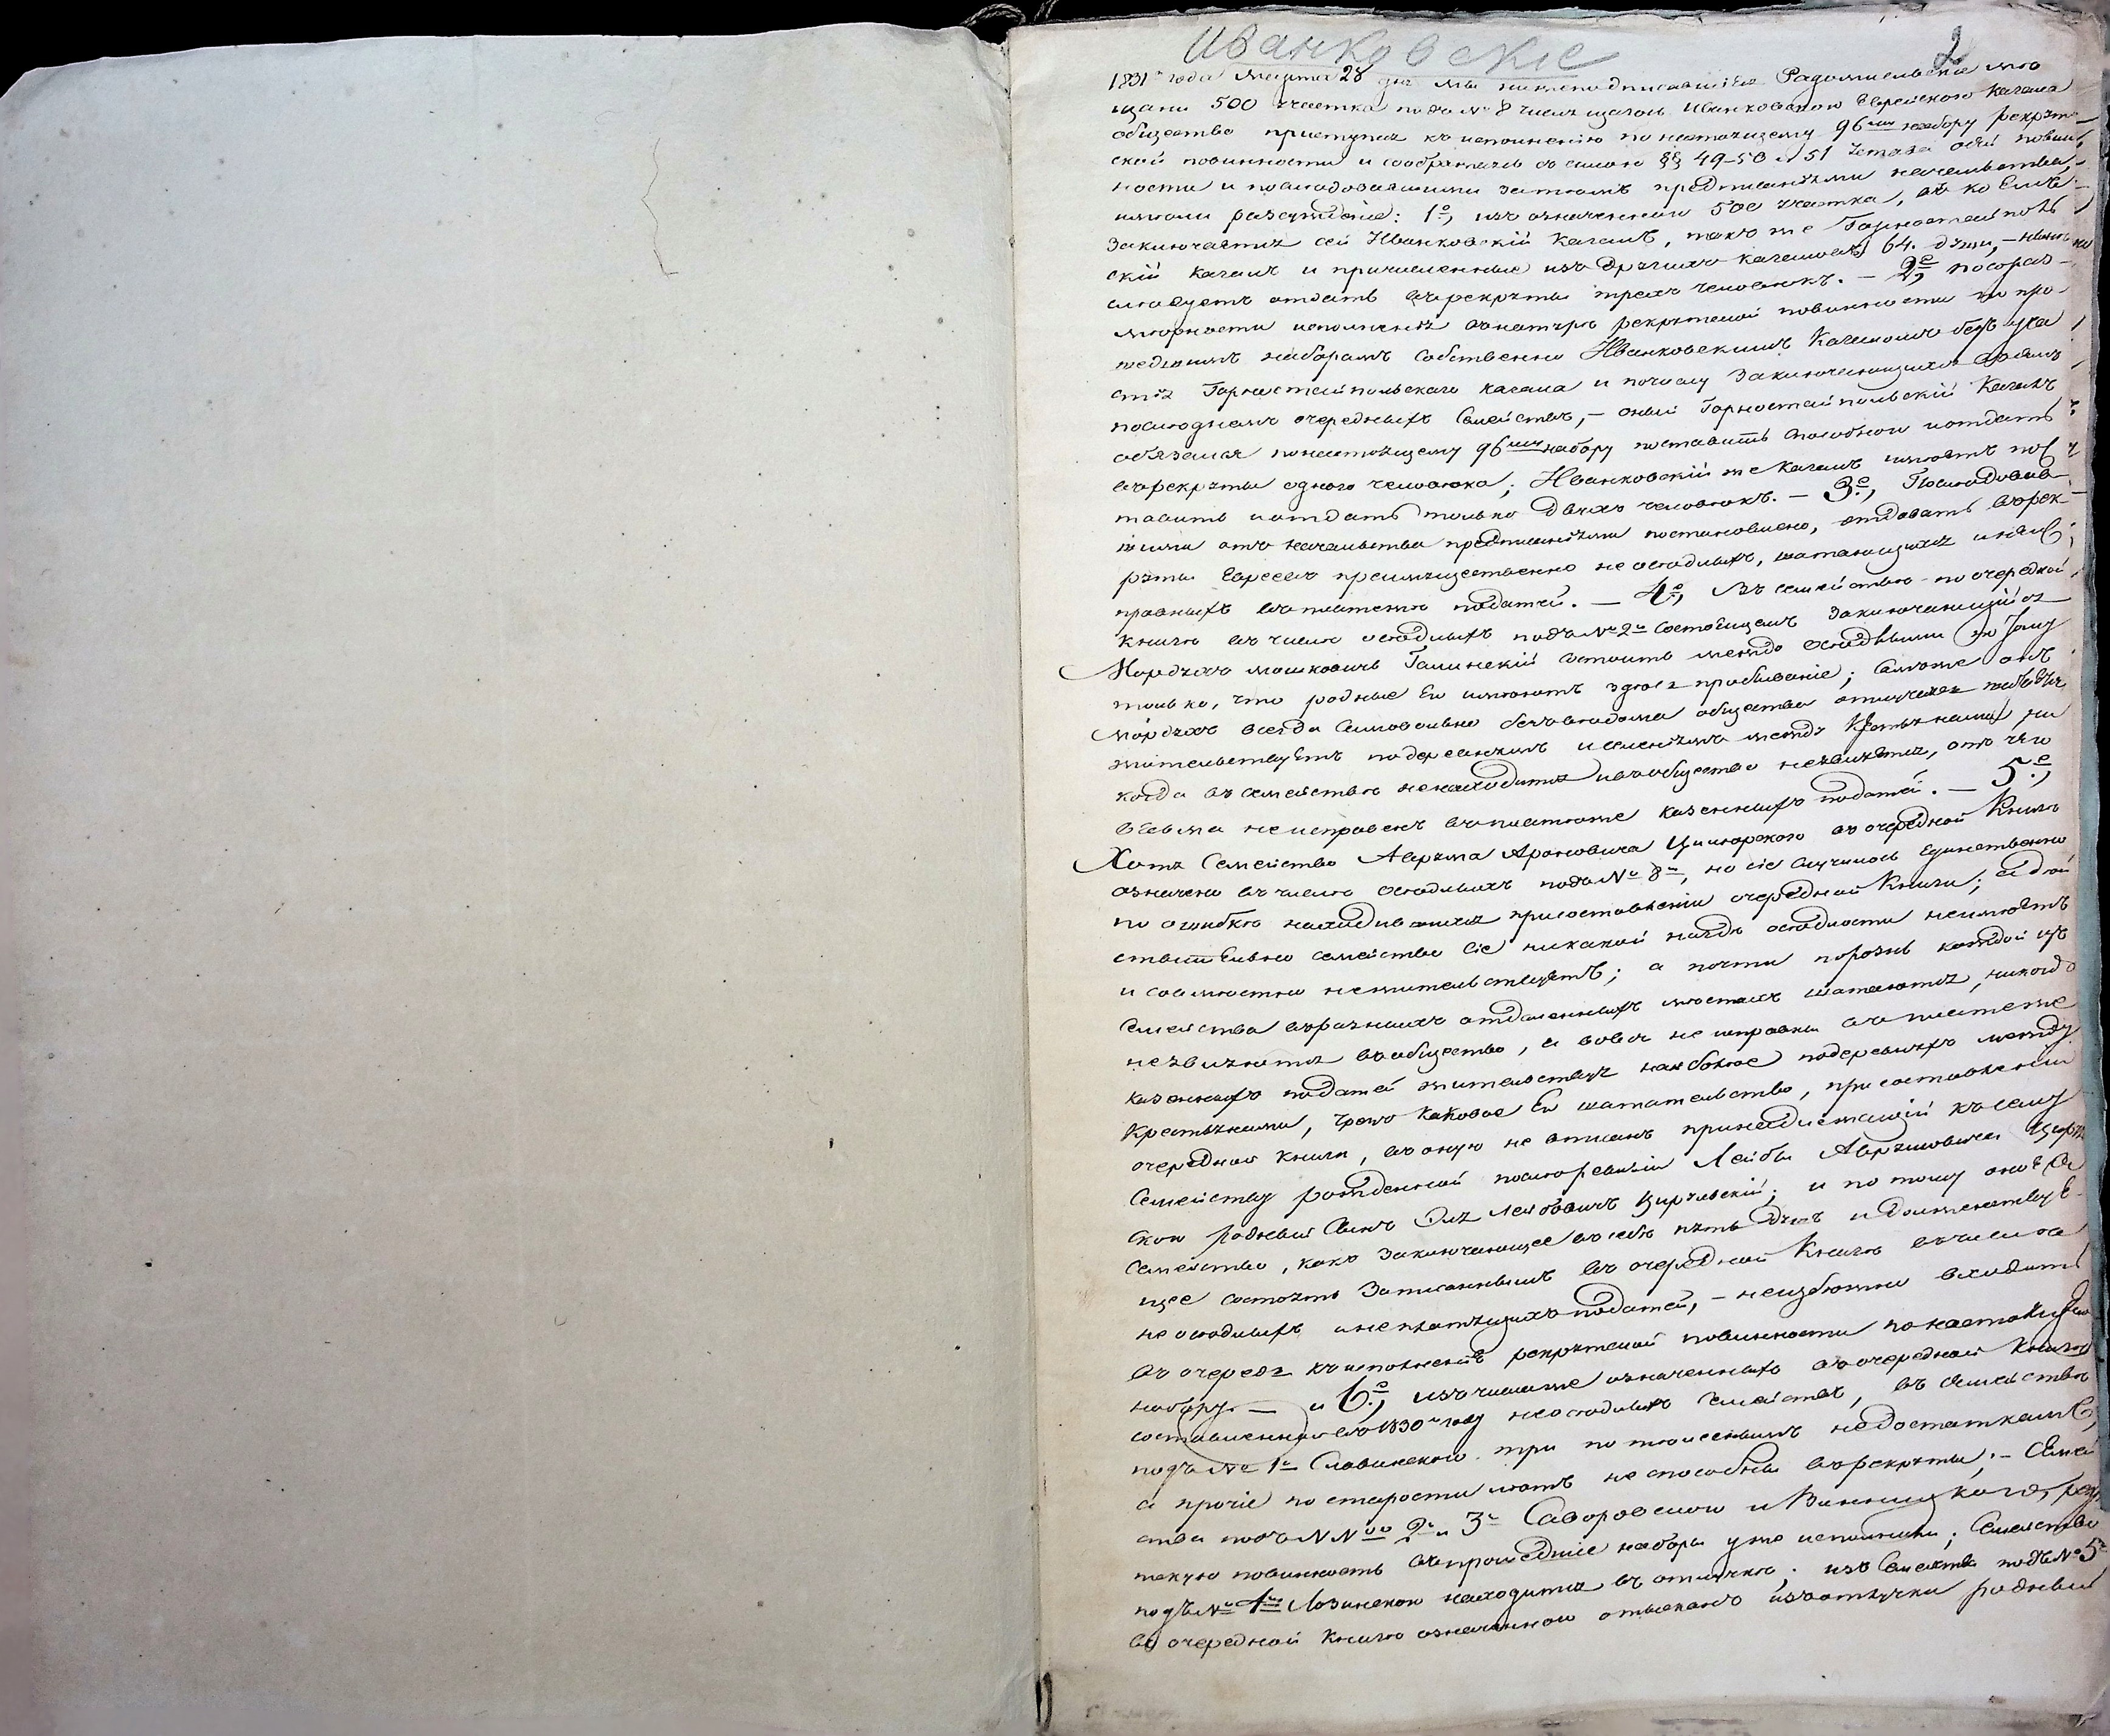 Иванковские
2
1831го года Марта 28 дня мы нижеподписавшиеся Радомысльские мѣ
щане 500 участка подъ № 8 числящагось Иванковского Еврейского Кагала
общество приступая къ исполненію по настоящему 96му набору рекрут
ской повинности и сообразаясь съ силою §§ 49-50 и 51 Устава объ повин
ности и последовавшими затѣмъ предписаніями начальства,
имѣли разсужденіе: 1е, изъ означенного 500 участка, въ коемъ
заключается сей Иванковскій Кагалъ, также Горностайполь
скій Кагалъ и причисленные изъ другихъ кагаловъ 64. души, —
слѣдуетъ отдать въ рекруты трехъ человѣкъ. — 2е, по сораз
мѣрности исполненія въ натурѣ рекрутской повинности по про
шедшимъ наборамъ собственно Иванковскимъ Кагаломъ безъ уча
стія Горностайпольскаго кагала и по числу заключающихся въ
послѣднемъ очередныхъ Семействъ, — оный Горностайпольскій Кагалъ
обязался по настоящему 96му набору поставить способного и отдать
въ рекруты одного человѣка; Иванковскій же Кагалъ имѣетъ пос
тавить и отдать только двухъ человѣкъ. — 3е, Последовав
шими отъ начальства предписаніями постановлено, отдавать въ рек
руты Евреевъ преимущественно не осѣдлыхъ, шатающихся и неис
правныхъ въ платежѣ податей. — 4е, Въ семействѣ по очередной
книгѣ въ числѣ осѣдлыхъ подъ № 2м состоящемъ заключающійся
Мордухъ Мошковичъ Галинскій состоитъ между осѣдлыми по тому
только, что родные Его имѣютъ здѣсь пребываніе; Самъ же онъ
Мордухъ всегда самовольно безъ вѣдома общества отлучаясь
жительствуетъ по деревнямъ и селеніямъ между Крестьянами, ни
когда въ семействѣ не находится и въ общество не является, отъ чего
весьма неисправенъ въ платежѣ казенныхъ податей. — 5е,
Хотя Семейство Аврума Ароновича Цинорского въ очередной Книгѣ
означено въ числѣ осѣдлыхъ подъ № 8м, но сіе случилось единственно
по ошибкѣ находившихся при составленіи очередной Книги; а дѣй
ствительно семейство сіе никакой нигдѣ осѣдлости не имѣетъ
и совмѣстно не жительствуетъ; а почти порознь каждой изъ
Семейства въ разныхъ отдаленныхъ мѣстахъ шатаются, никогда
не являются въ общество, и вовсе не исправны въ платеже
казенныхъ податей жительствуя наиболее по деревняхъ между
Крестьянами, чрезъ каковое Его шатательство, при составленіи
очередной книги, въ оную не вписанъ принадлежащій къ сему
Семейству рожденной после ревизіи Лейбы Аврумовича
ского родный Сынъ Лейбовичъ; и по тому оное
Семейство, какъ заключающее въ себѣ пять душъ и долженствую
щее состоять записаннымъ въ очередной Книгѣ въ числѣ
не осѣдлыхъ и неплатящихъ податей, — неизбѣжно входитъ
въ очередь къ исполненію рекрутской повинности по настоящему
набору. — и 6е, изъ числа же означенныхъ въ очередной Книгѣ
составленной въ 1830м году неосѣдлыхъ Семействъ, въ Семействѣ
подъ № 1м Славинского три по тѣлеснымъ недостаткамъ,
а прочіе по старости лѣтъ не способны въ рекруты; — Семей
ства подъ NNми 2м и 3м Саворовского и Винницкого, рекру
тскую повинность въ прошедшіе наборы уже исполнили; Семейство
подъ № 4м Лозинского находится въ отлучкѣ; изъ Семейства подъ № 5м
въ очередной Книгѣ означенного отысканъ изъ отлучки родный